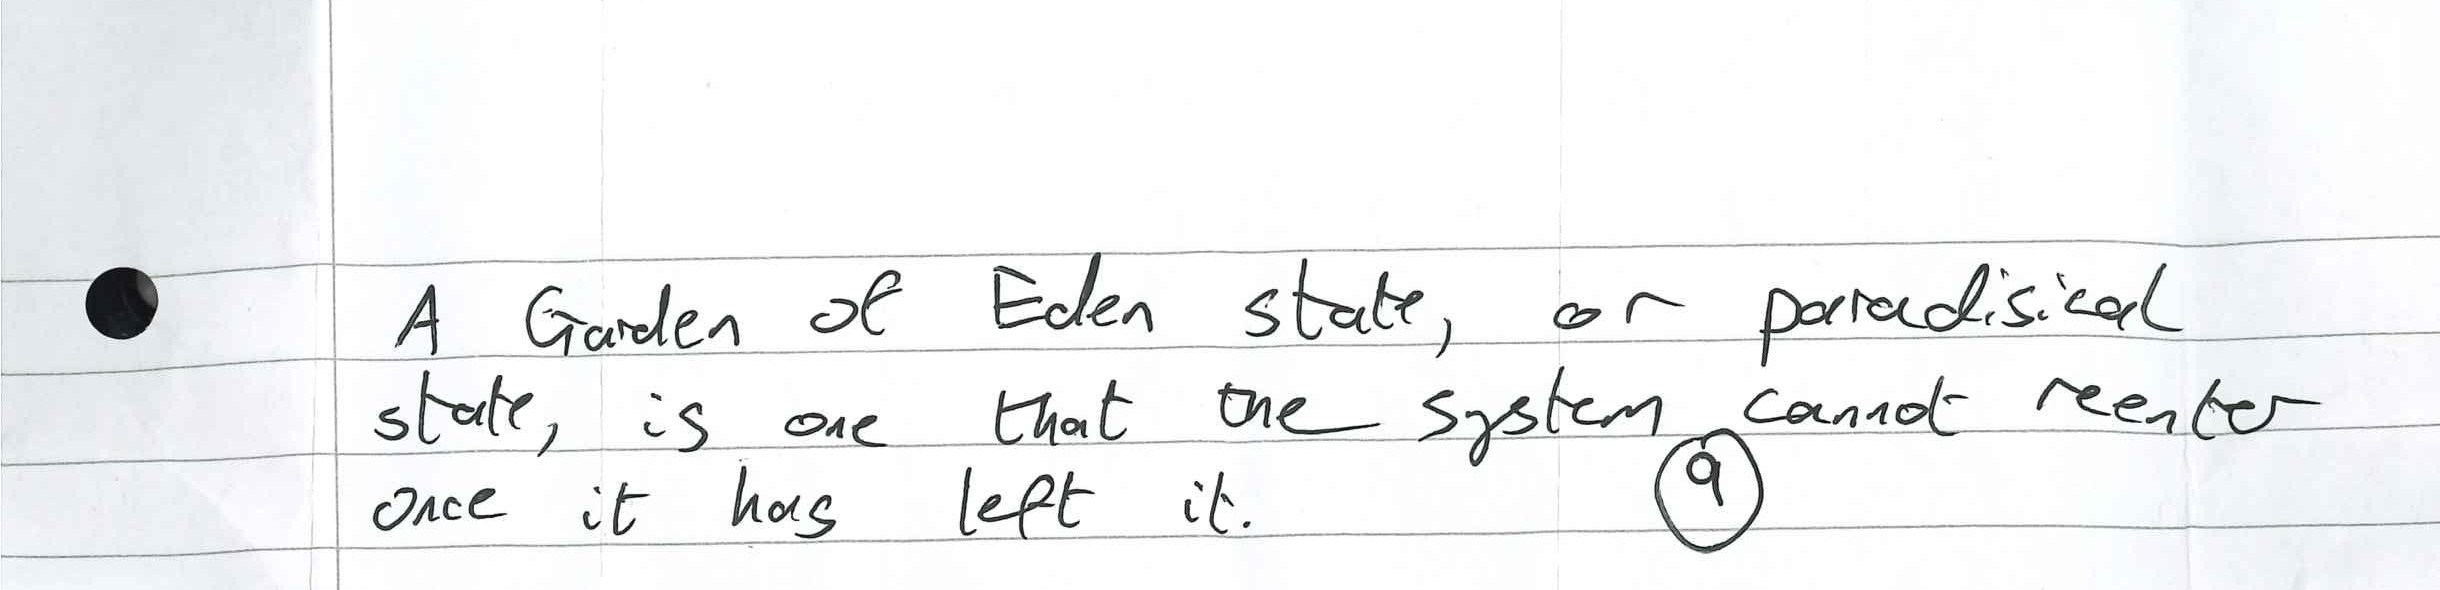 A Garden of Eden state, or paradisical
state, is one that the system cannot reenter
once it has left it. 9